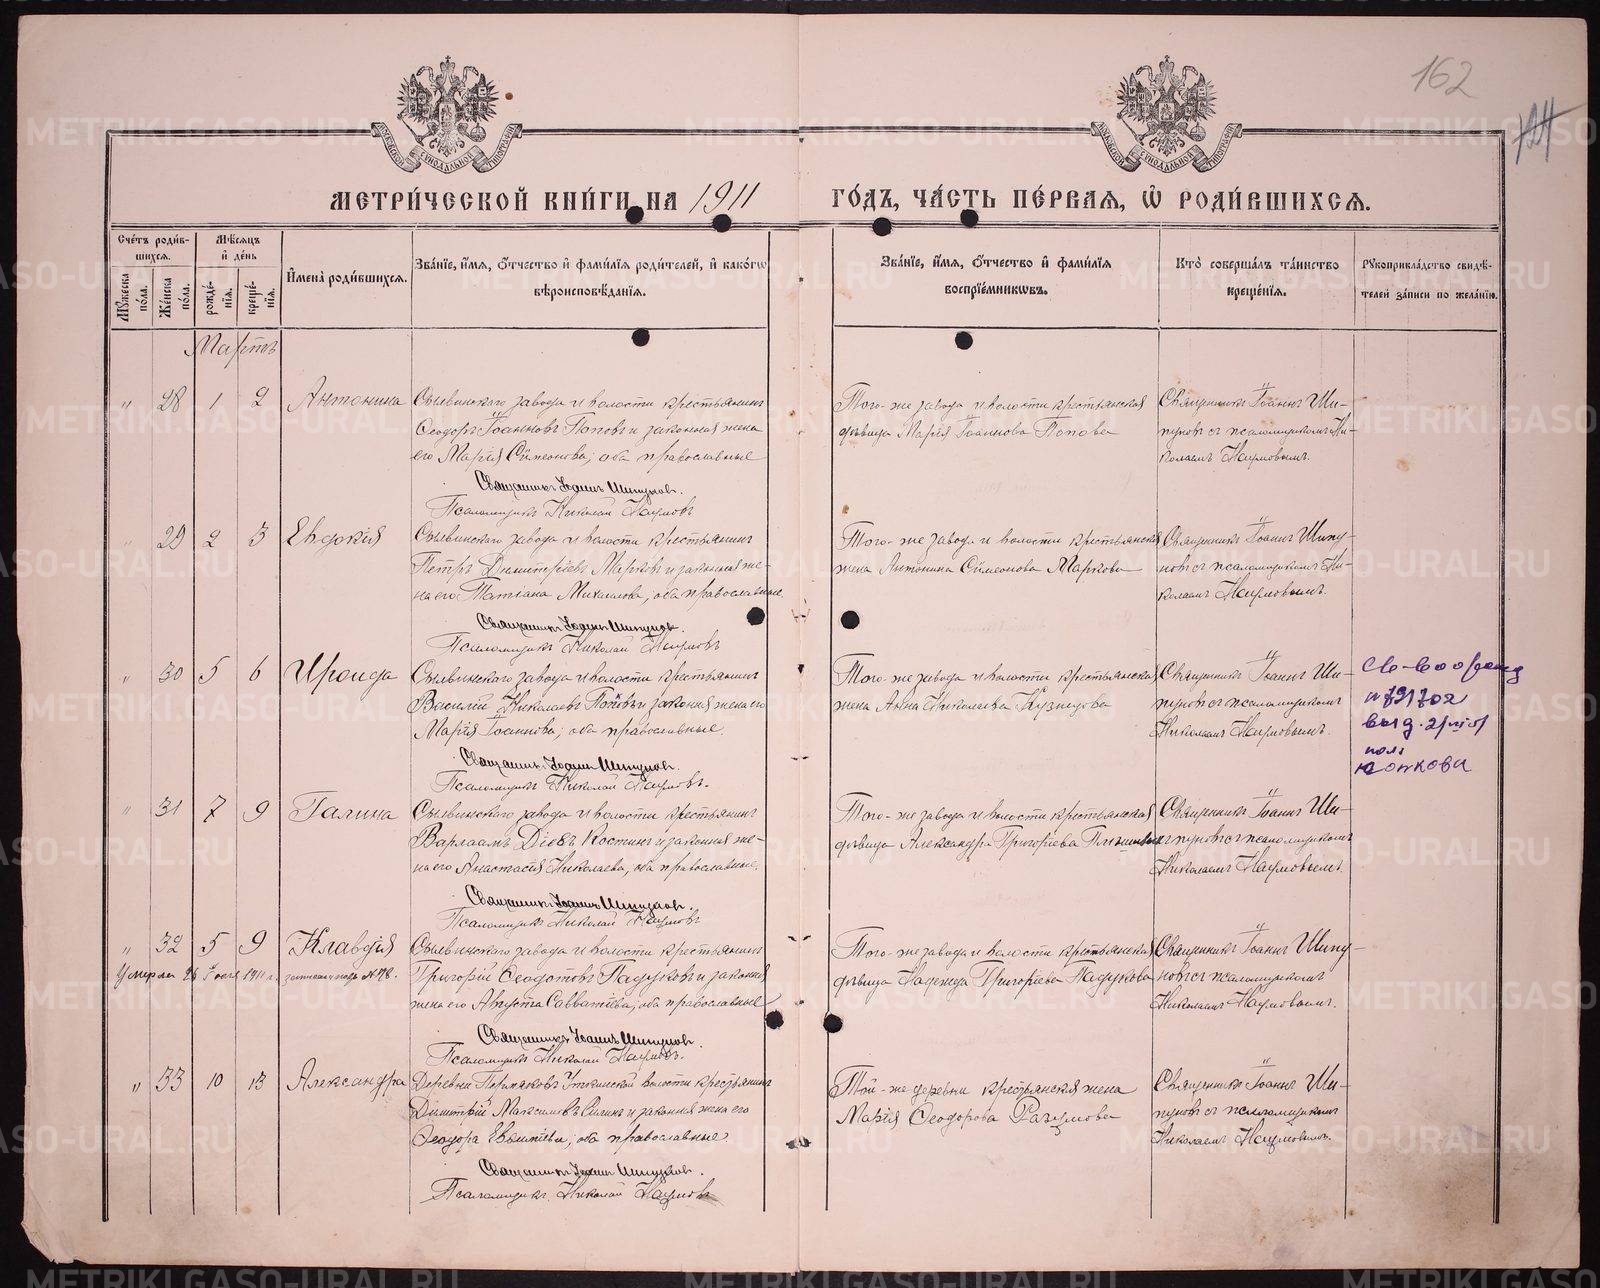 162
МОСКОВСКОЙ СѴНОДАЛЬНОЙ ТИПОГРАФІИ
МОСКОВСКОЙ СѴНОДАЛЬНОЙ ТИПОГРАФІИ
МЕТРИ́ЧЕСКОЙ КНИ́ГИ НА 1911 ГО́ДЪ, ЧА́СТЬ ПЕ́РВАЯ, Ѡ҆ РОДИ́ВШИХСѦ.
Сче́тъ роди́вшихсѧ.
Мꙋ́жеска по́ла.
Же́нска по́ла.
Мѣ́сѧцъ и҆ де́нь
рожде́нїѧ.
креще́нїѧ.
И҆мена̀ роди́вшихсѧ.
Зва́нїе, и҆́мѧ, ѻ҆́тчество и҆ фами́лїѧ роди́телей, и҆ како́гѡ
вѣроисповѣ́данїѧ.
Зва́нїе, и҆́мѧ, ѻ҆́тчество и҆ фами́лїѧ
воспрїе́мникѡвъ.
Кто̀ соверша́лъ та́инство
креще́нїѧ.
Рꙋкоприкла́дство свидѣ́-
телей за́писи по жела́нїю.
Мартъ
" 28 1 2 Антонина
Сылвинскаго завода и волости крестьянинъ
Ѳеодоръ Іоанновъ Поповъ и законная жена
его Марія Сѵмеонова; оба православные
Священникъ Іоаннъ Шипуновъ.
Псаломщикъ Николай Наумовъ
Того-же завода и волости крестьянская
дѣвица Марія Іоаннова Попова
Священникъ Іоаннъ Ши-
пуновъ съ псаломщикомъ Ни-
колаемъ Наумовымъ.
" 29 2 3 Евдокія
Сылвинскаго завода и волости крестьянинъ
Петръ Димитріевъ Марковъ и законная же-
на его Татіана Михаилова, оба православные.
Священникъ Іоаннъ Шипуновъ.
Псаломщикъ Николай Наумовъ
Того-же завода и волости крестьянская
жена Антонина Сѵмеонова Маркова
Священникъ Іоаннъ Шипу-
новъ съ псаломщикомъ Ни-
колаемъ Наумовымъ.
" 30 5 6 Ироида
Сылвинскаго завода и волости крестьянинъ
Василій Николаевъ Поповъ и законная жена его
Марія Іоаннова; оба православные.
Священникъ Іоаннъ Шипуновъ.
Псаломщикъ Николай Наумовъ.
Того-же завода и волости крестьянская
жена Анна Николаева Кузнецова
Священникъ Іоаннъ Ши-
пуновъ съ псаломщикомъ
Николаемъ Наумовымъ.
св-во о рожд
выд.
" 31 7 9 Галина
Сылвинскаго завода и волости крестьянинъ
Варлаамъ Діевъ Костинъ и законная же-
на его Анастасія Николаева, оба православные.
Священникъ Іоаннъ Шипуновъ.
Псаломщикъ Николай Наумовъ
Того-же завода и волости крестьянская
дѣвица Александра Григоріева
Священникъ Іоаннъ Ши-
пуновъ съ псаломщикомъ
Николаемъ Наумовымъ.
" 32 5 9 Клавдія
Умерла 26 Іюля 1911 г. записана подъ №
Сылвинскаго завода и волости крестьянинъ
Григорій Ѳеодотовъ Падуковъ и законная
жена его Августа Савватіева, оба православные
Священникъ Іоаннъ Шипуновъ.
Псаломщикъ Николай Наумовъ.
Того-же завода и волости крестьянская
дѣвица Надежда Григоріева Падукова
Священникъ Іоаннъ Шипу-
новъ съ псаломщикомъ
Николаемъ Наумовымъ.
" 33 10 13 Александра
Деревни Пермяковъ Уткинской волости крестьянинъ
Димитрій Максимовъ и законная жена его
Ѳеодора Евѳиміева, оба православные.
Священникъ Іоаннъ Шипуновъ.
Псаломщикъ Николай Наумовъ
Той-же деревни крестьянская жена
Марія Ѳеодорова Разумова
Священникъ Іоаннъ Ши-
пуновъ съ псаломщикомъ
Николаемъ Наумовымъ.
METRIKI.GASO-URAL.RU